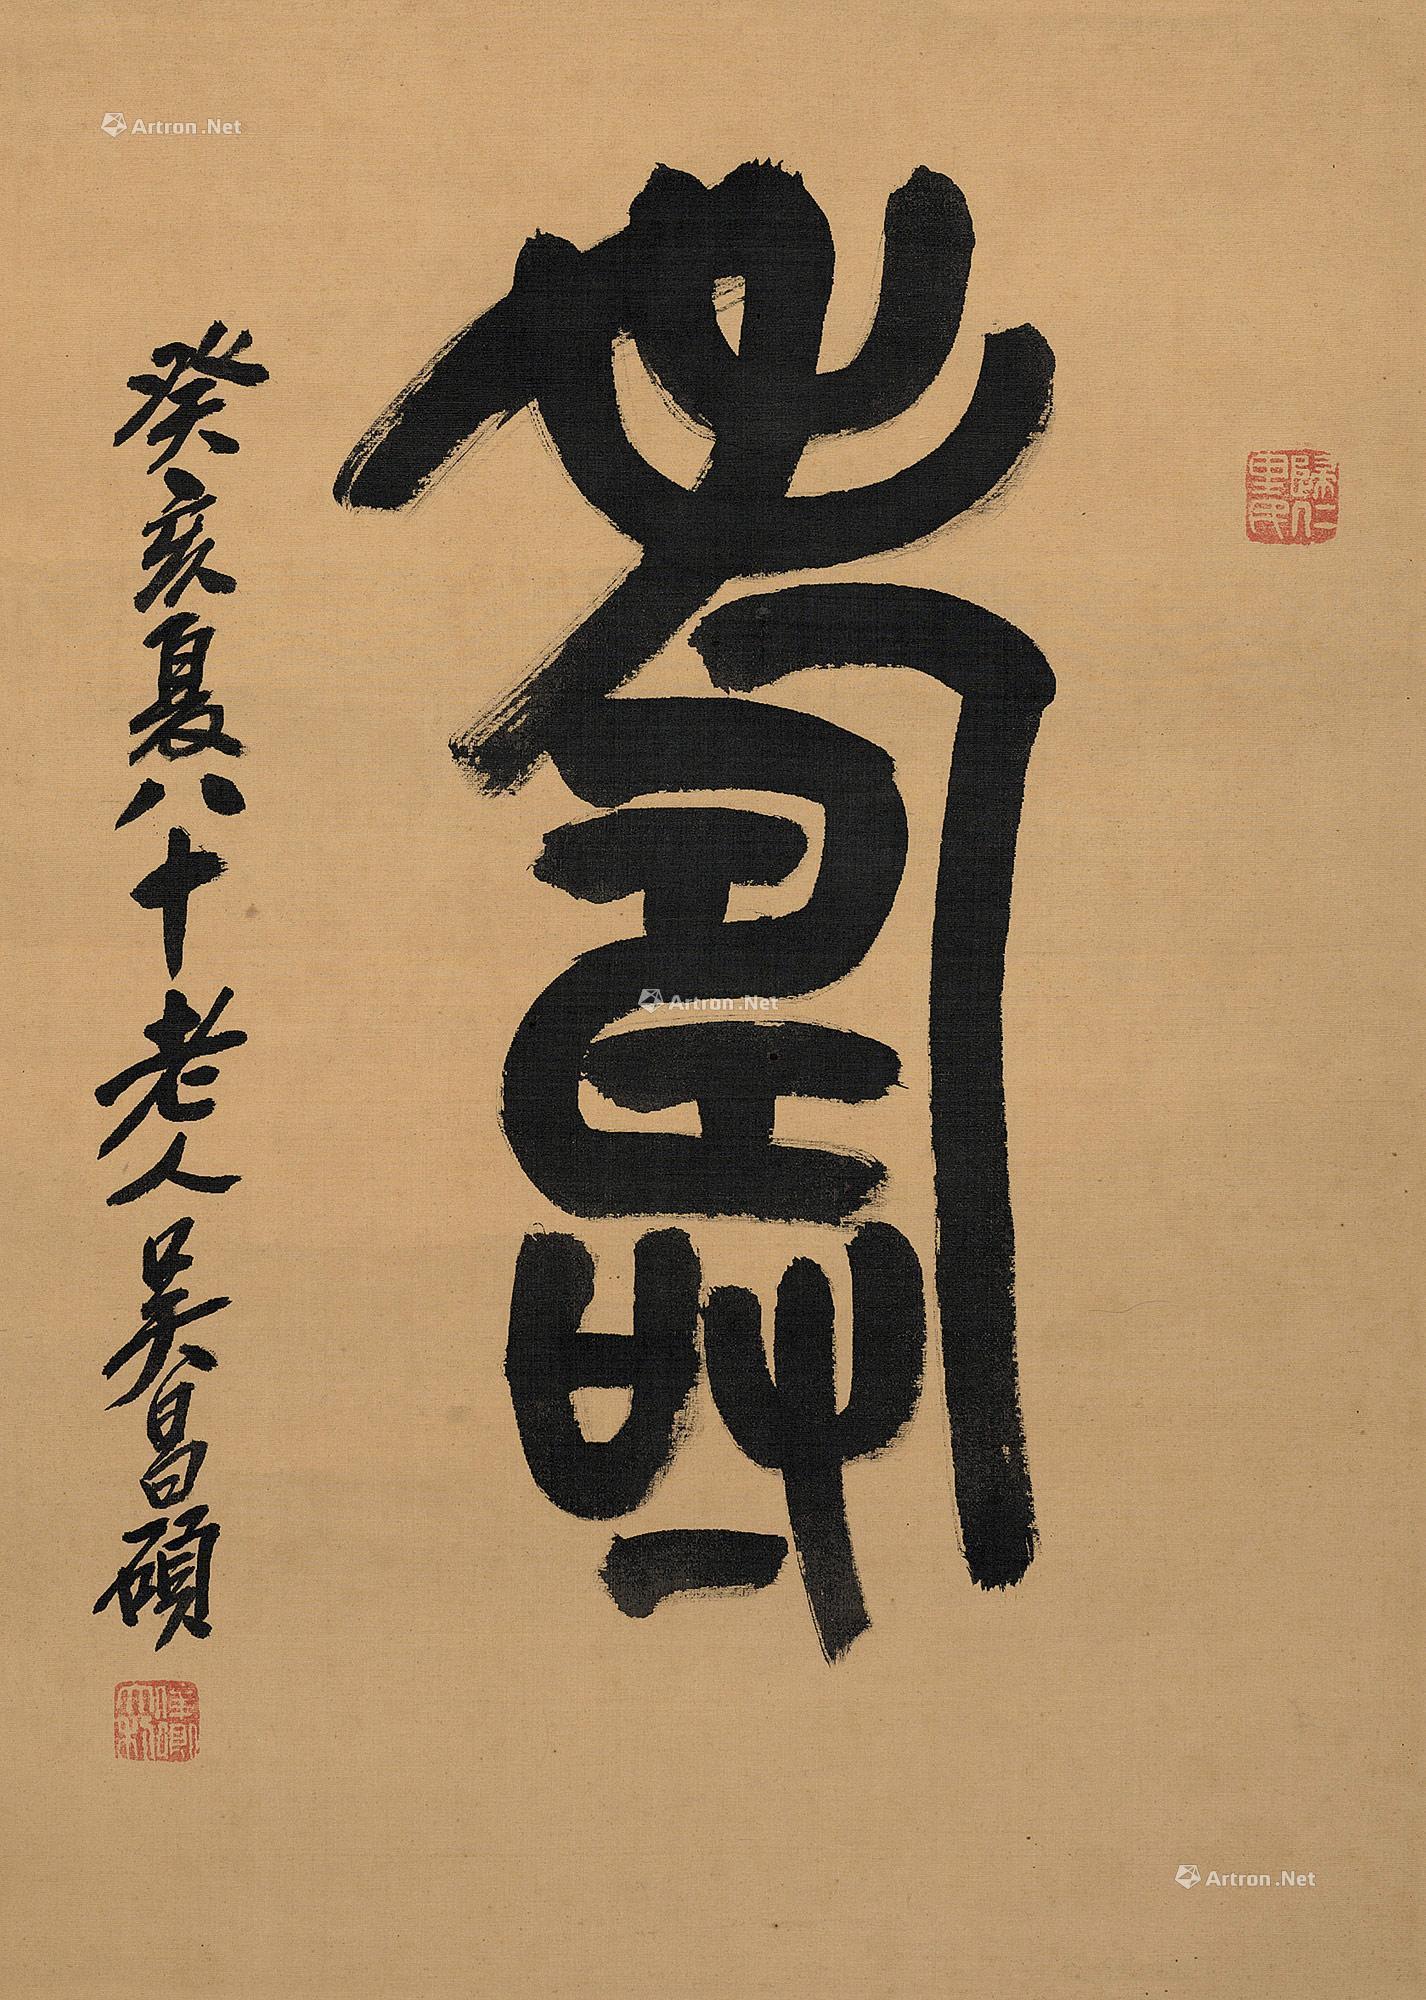 壽
癸亥夏八十老人吳昌碩
歸仁里民
Artron.Net
Artron.Net
Artron.Net